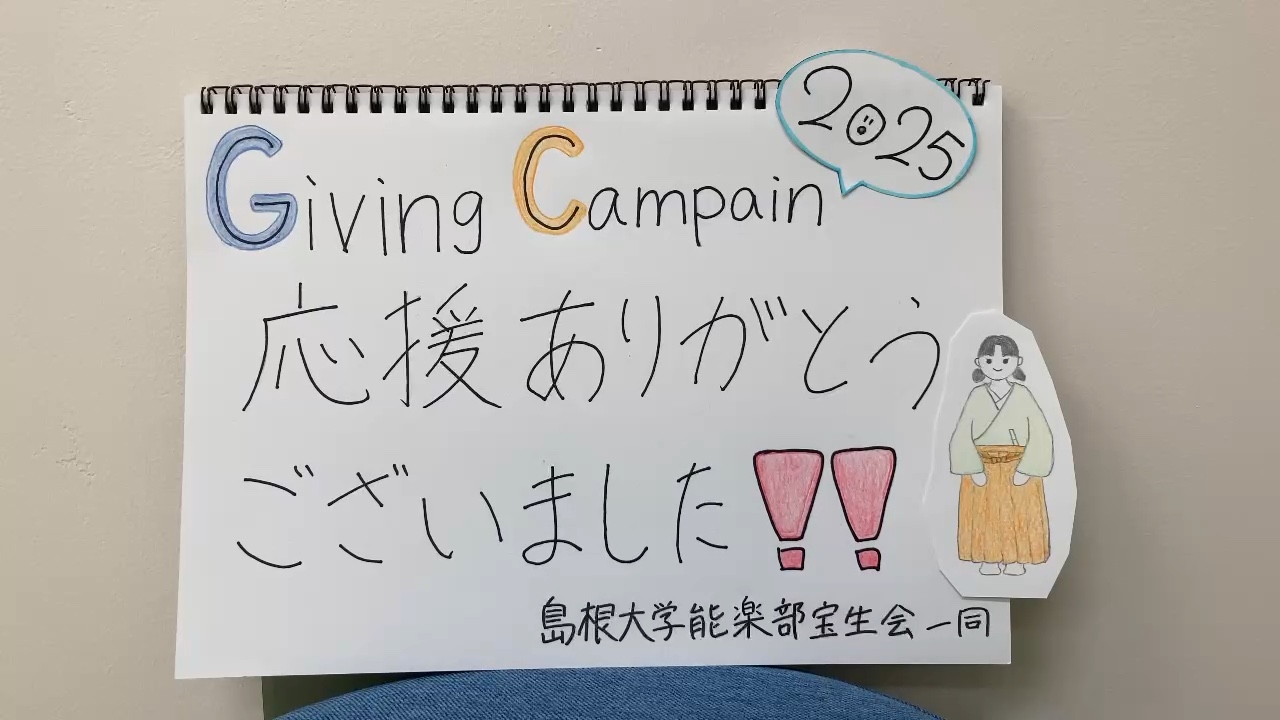 Giving Campain
2025
応援ありがとう
ございました!!
島根大学能楽部宝生会一同